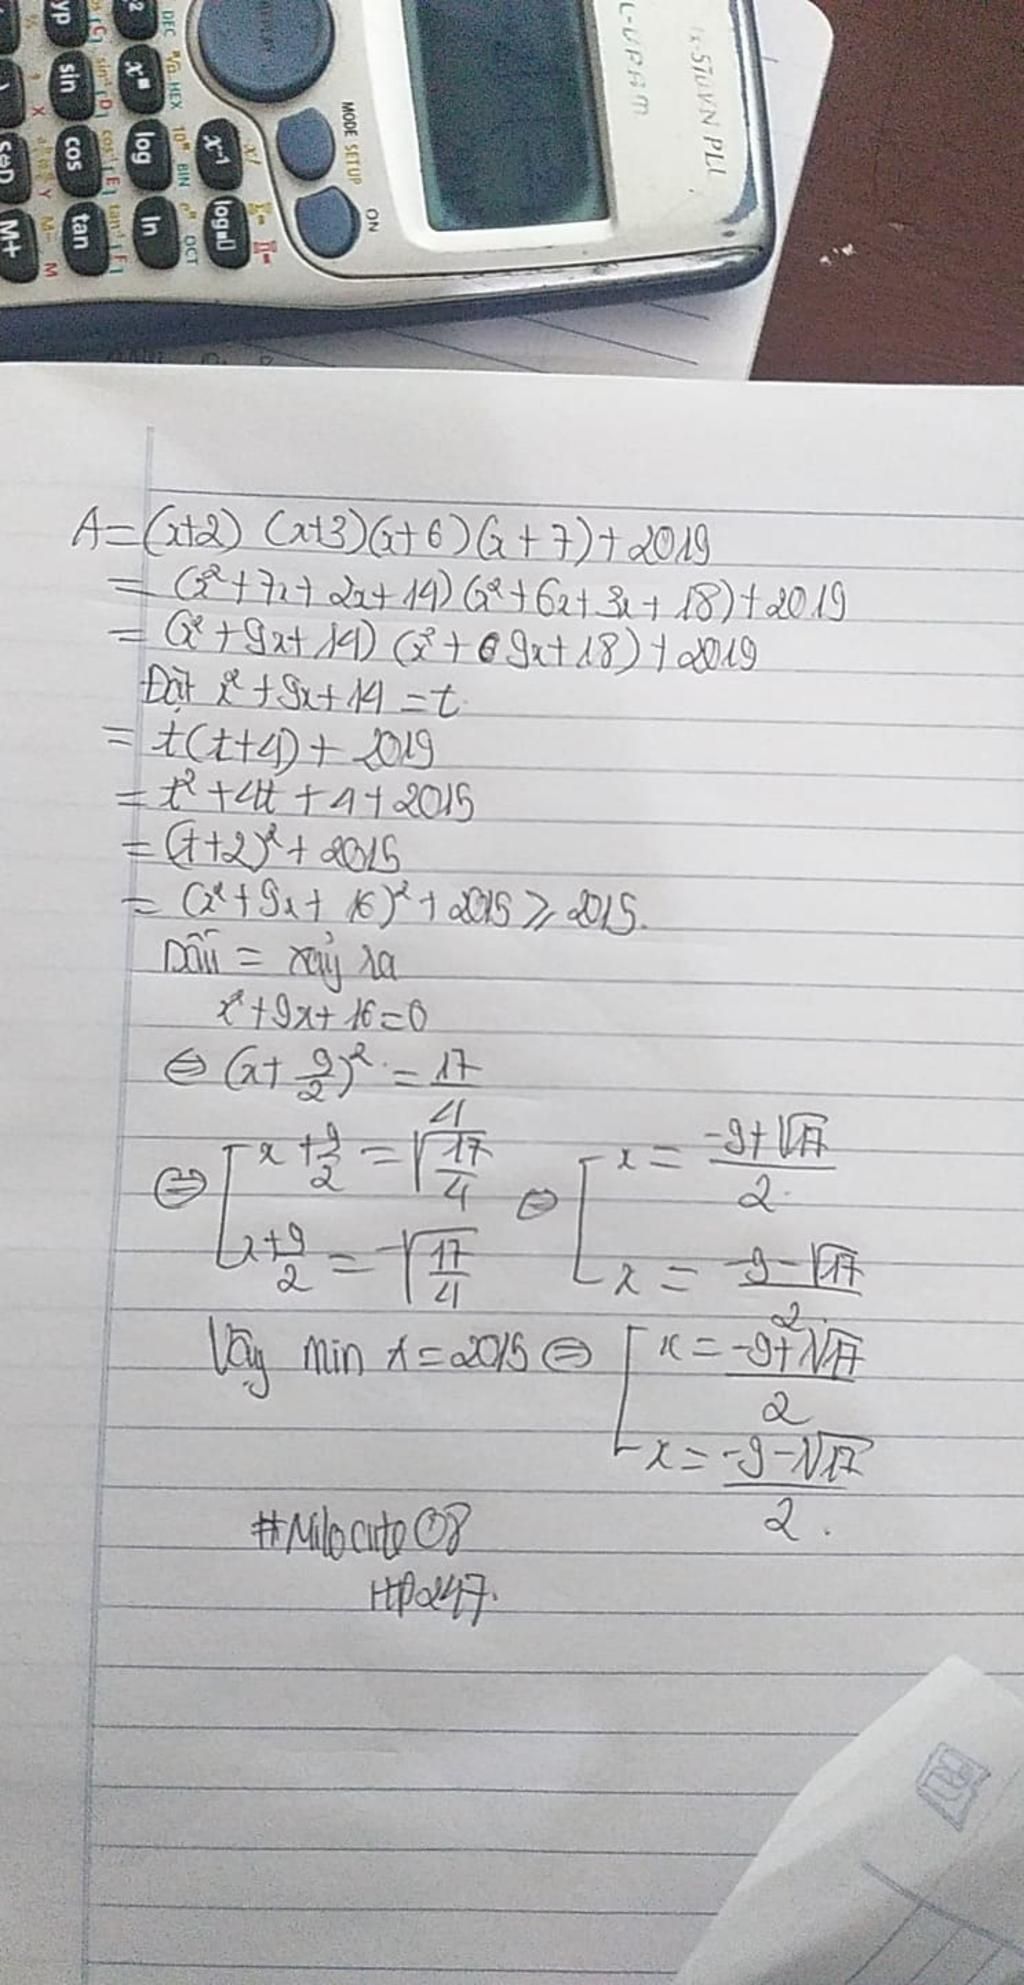 L-VPAM
MODE SETUP
ON
REPLAY
DEC
HEX
BIN
OCT
x⁻¹
log
ln
sin
cos
tan
M+
M
A=(x+2) (x+3)(x+6)(x+7)+2019
= (x²+7x+2x+14)(x²+6x+3x+18)+2019
= (x²+9x+14) (x²+9x+18)+2019
Đặt x²+9x+14=t
= t(t+4)+2019
= t²+4t+4+2015
= (t+2)²+2015
= (x²+9x+16)²+2015 ⩾ 2015.
Dấu = xảy ra
x²+9x+16=0
⇔ (x+9/2)² = 17/4
⇔ [ x+9/2 = √(17/4) ⇔ [ x = (-9+√17)/2
x+9/2 = -√(17/4) x = (-9-√17)/2
Vậy min A=2015 ⇔ [ x = (-9+√17)/2
x = (-9-√17)/2.
#Milocute08
HP247.